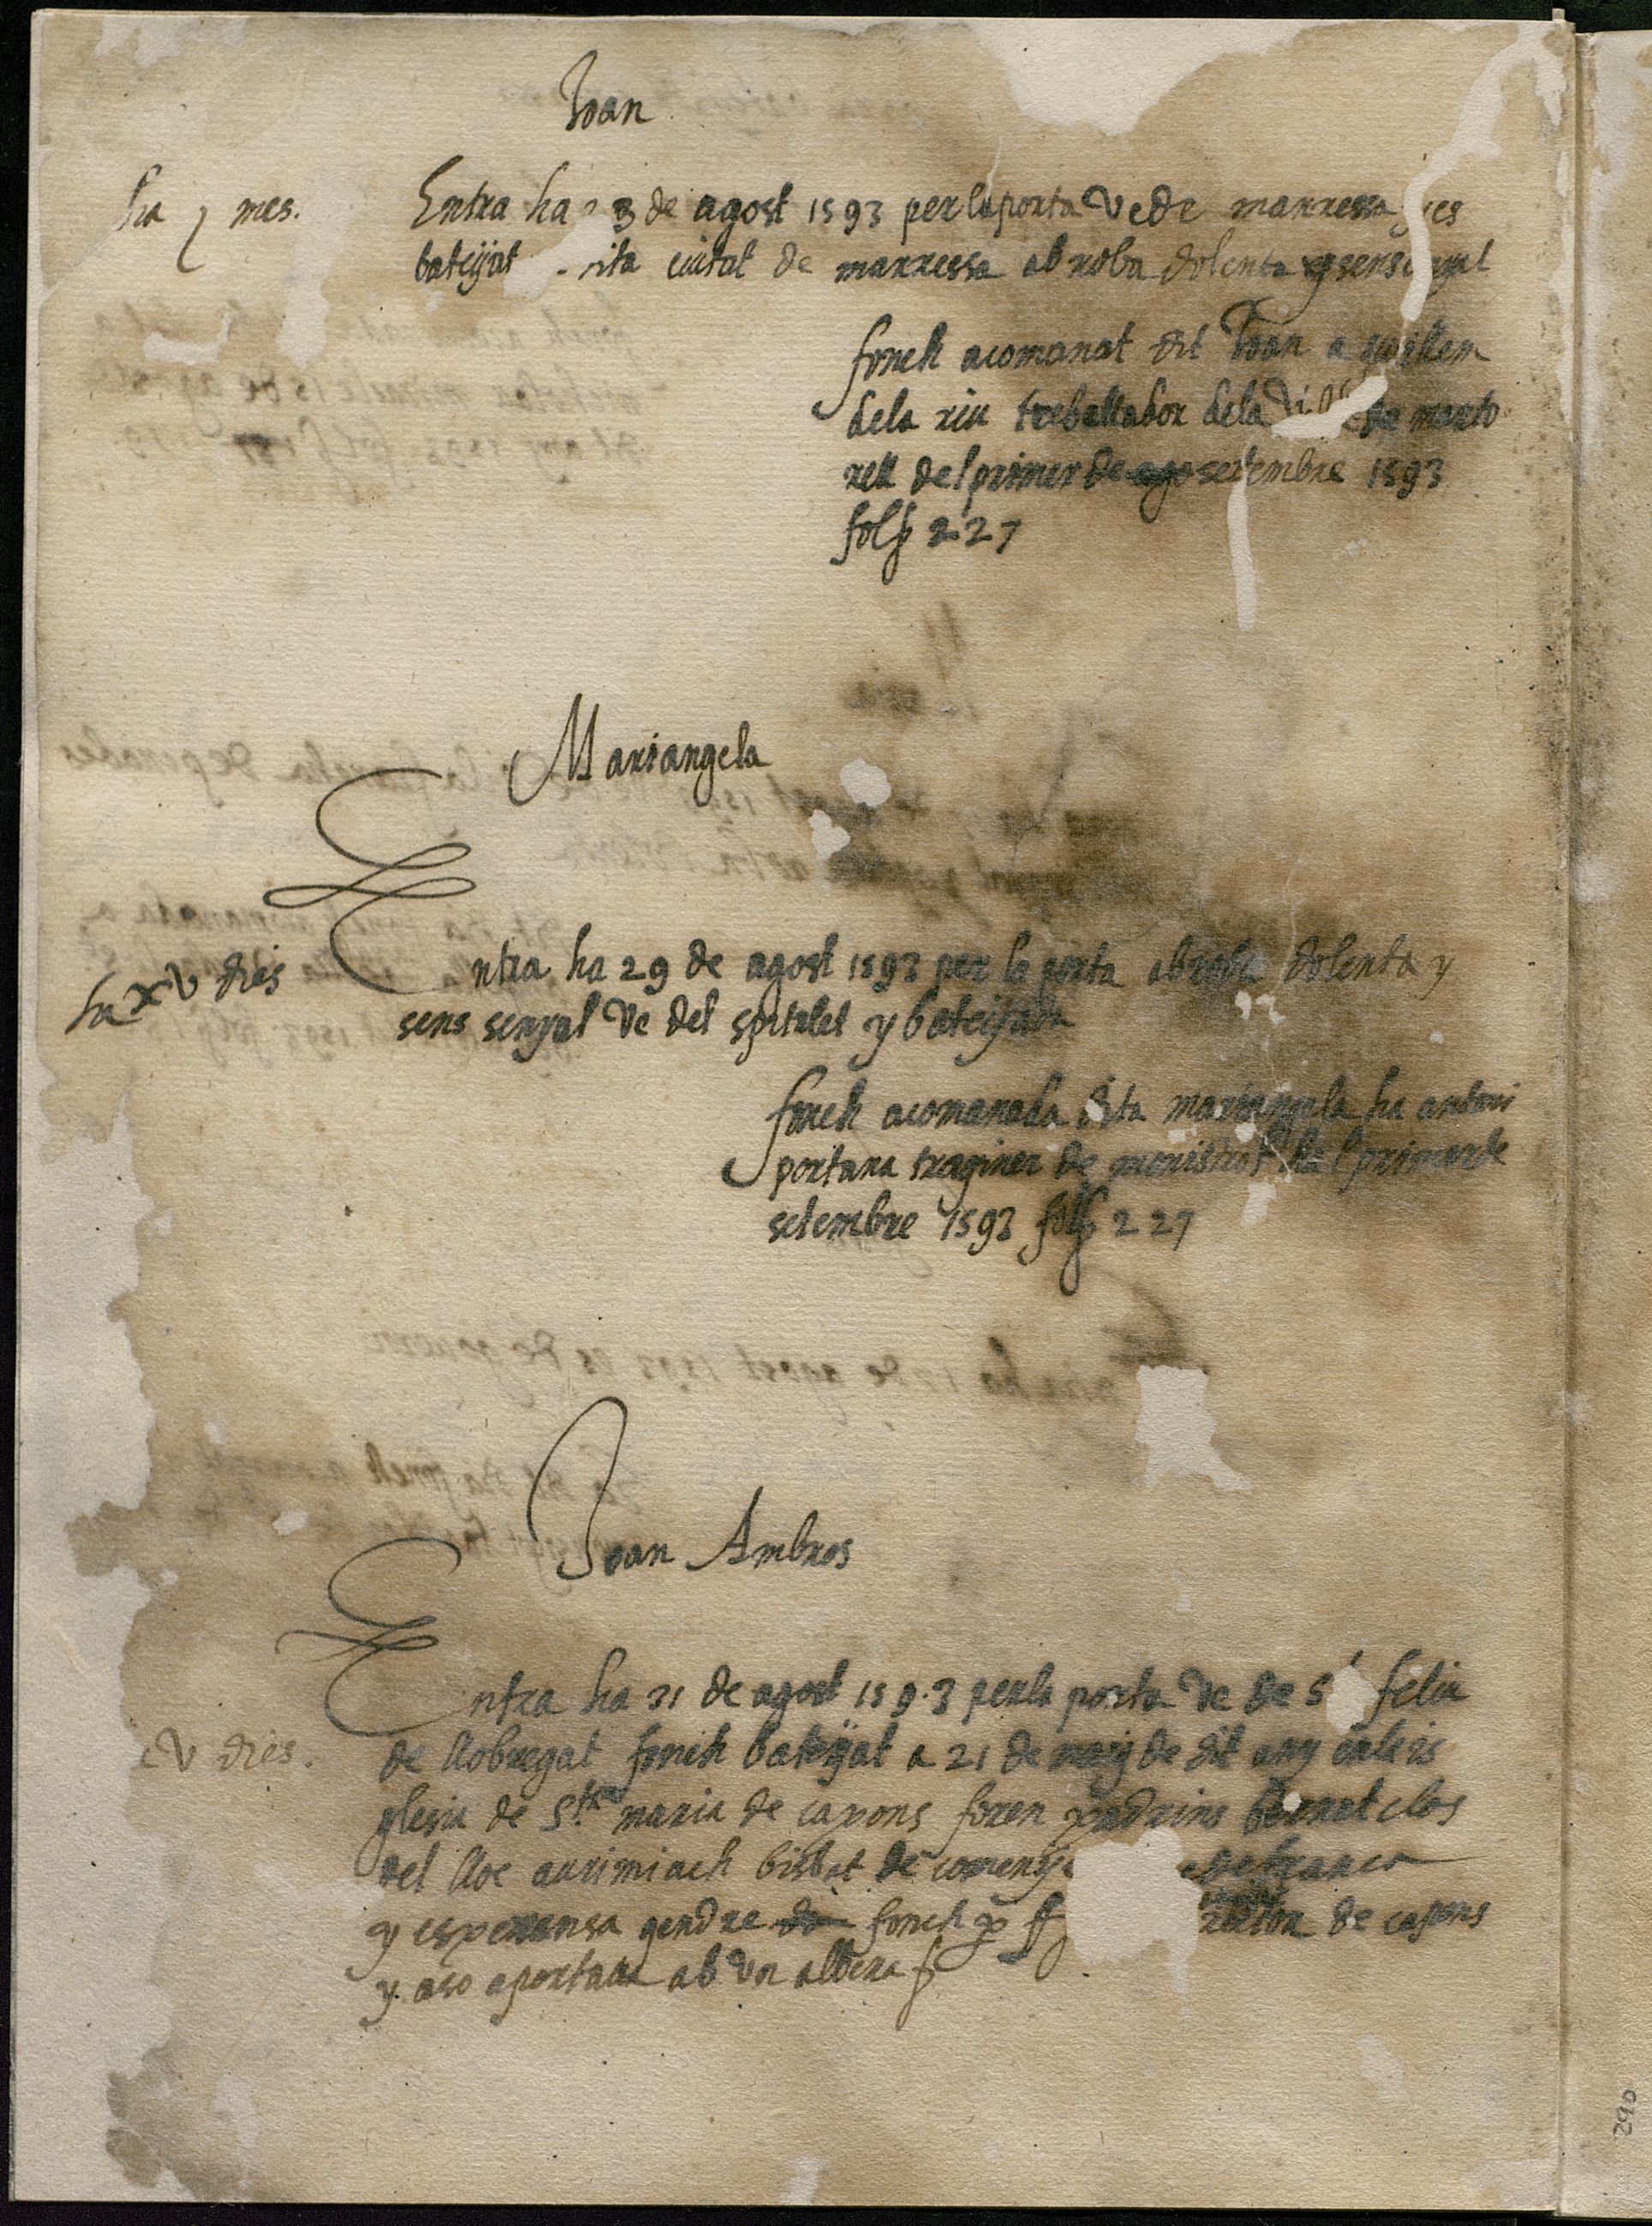 Joan
ha 1 mes.
Entra ha 3 de agost 1593 per la porta ve de manressa y es
batejat dita ciutat de manressa ab roba dolenta y sens senyal
fonch acomanat dit Joan a guillem
dela riu treballador dela de marto
rell del primer de ago setembre 1593
fol 227
Mariangela
ha xv dies
Entra ha 29 de agost 1593 per la porta ab roba dolenta y
sens senyal ve del spitalet y batejada
fonch acomanada dita mariangela ha antoni
portara traginer de monistrol ha l primer de
setembre 1593 fol 227
Joan Ambros
Entra ha 31 de agost 1593 per la porta ve de St feliu
v dies.
de llobregat fonch batejat a 21 de de dit any en la is
glesia de Sta maria de capons foren padrins bernat clos
del lloc bisbat de comenge de franca
y esperansa gendre fonch rector de capons
y aso aportava ab un albera
290